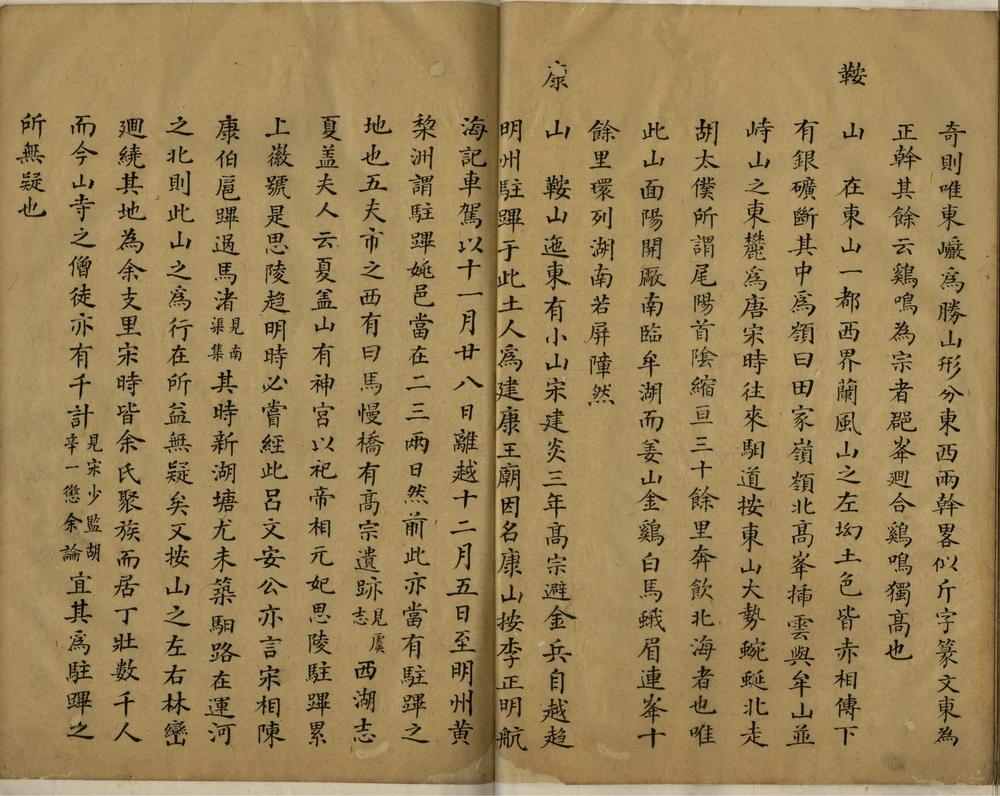 奇則唯東巖爲勝山形分東西兩幹畧似斤字篆文東為
正幹其餘云鷄鳴為宗者郡峯廻合鷄鳴獨高也
鞍山　在東山一都西界蘭風山之左坳土色皆赤相傳下
有銀礦斷其中爲嶺曰田家嶺嶺北高峯揷雲與牟山並
峙山之東麓爲唐宋時往來馹道按東山大勢蜿蜒北走
胡太僕所謂尾陽首陰縮亘三十餘里奔飲北海者也唯
此山面陽開厰南臨牟湖而姜山金鷄白馬蛾眉連峯十
餘里環列湖南若屏障然
康山　鞍山迤東有小山宋建炎三年髙宗避金兵自越趋
明州駐蹕于此土人爲建康王廟因名康山按李正明航
海記車駕以十一月廿八日離越十二月五日至明州黄
黎洲謂駐蹕姚邑當在二三兩日然前此亦當有駐蹕之
地也五夫市之西有曰馬慢橋有髙宗遺跡見虞志西湖志
夏盖夫人云夏盖山有神宮以祀帝相元妃思陵駐蹕累
上徽號是思陵趋明時必嘗經此呂文安公亦言宋相陳
康伯扈蹕過馬渚見南渠集其時新湖塘尤未築馹路在運河
之北則此山之爲行在所益無疑矣又按山之左右林巒
廻繞其地為余支里宋時皆余氏聚族而居丁壮數千人
而今山寺之僧徒亦有千計見宋少監胡幸一懲余論宜其爲駐蹕之
所無疑也